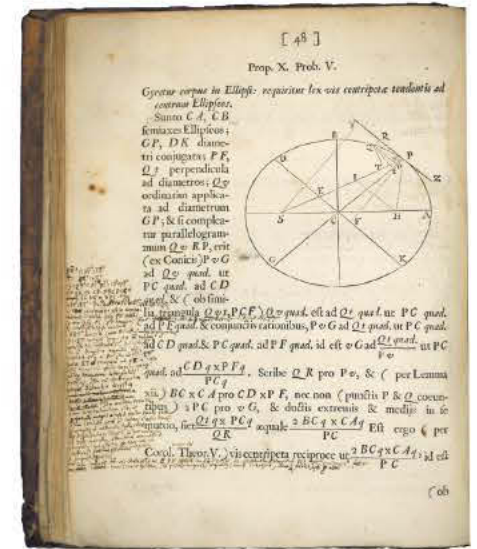 [ 48 ]
Prop. X. Prob. V.
Gyretur corpus in Ellipsi: requiritur lex vis centripetæ tendentis ad
centrum Ellipseos.
Sunto CA, CB
semiaxes Ellipseos;
GP, DK diame-
tri conjugatæ; PF,
Qt perpendicula
ad diametros; Qv
ordinatim applica-
ta ad diametrum
GP; & si complea-
tur parallelogram-
mum QvRP, erit
(ex Conicis) PvG
ad Qv quad. ut
PC quad. ad CD
quad. & (ob simi-
lia triangula Qvt, PCF) Qv quad. est ad Qt quad. ut PC quad.
ad PF quad. & conjunctis rationibus, PvG ad Qt quad. ut PC quad.
ad CD quad. & PC quad. ad PF quad. id est vG ad Qt quad. / Pv ut PC
quad. ad CDq x PFq / PCq. Scribe QR pro Pv, & (per Lemma
xii.) BC x CA pro CD x PF, nec non (punctis P & Q coeun-
tibus) 2PC pro vG, & ductis extremis & mediis in se
mutuo, fiet Qtq x PCq / QR æquale 2BCq x CAq / PC. Est ergo (per
Corol. Theor. V.) vis centripeta reciproce ut 2BCq x CAq / PC, id est
(ob
B
R
P
Z
D
T
E
I
S
C
F
H
A
G
K